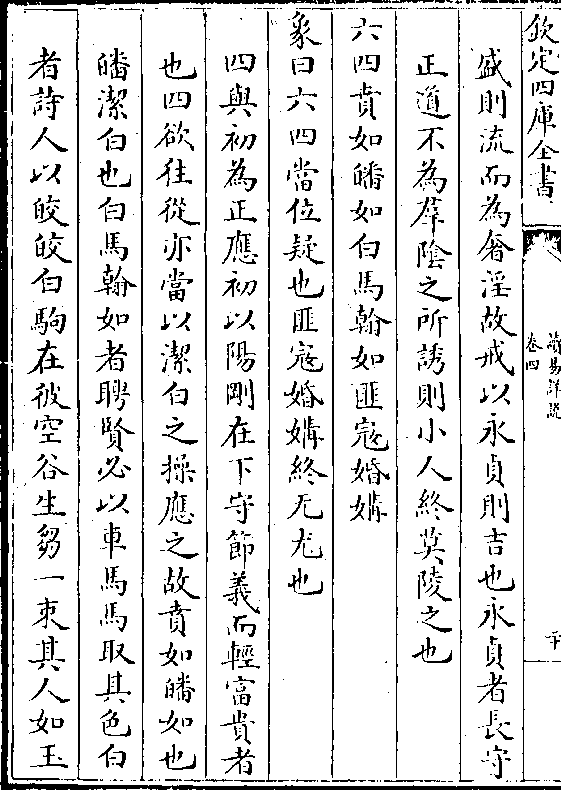 欽定四庫全書
讀易詳說
卷四
二十
盛則流而為奢淫故戒以永貞則吉也永貞者長守
正道不為羣陰之所誘則小人終莫陵之也
六四賁如皤如白馬翰如匪寇婚媾
象曰六四當位疑也匪寇婚媾終无尤也
四與初為正應初以陽剛在下守節義而輕富貴者
也四欲往從亦當以潔白之操應之故賁如皤如也
皤潔白也白馬翰如者聘賢必以車馬馬取其色白
者詩人以皎皎白駒在彼空谷生芻一束其人如玉